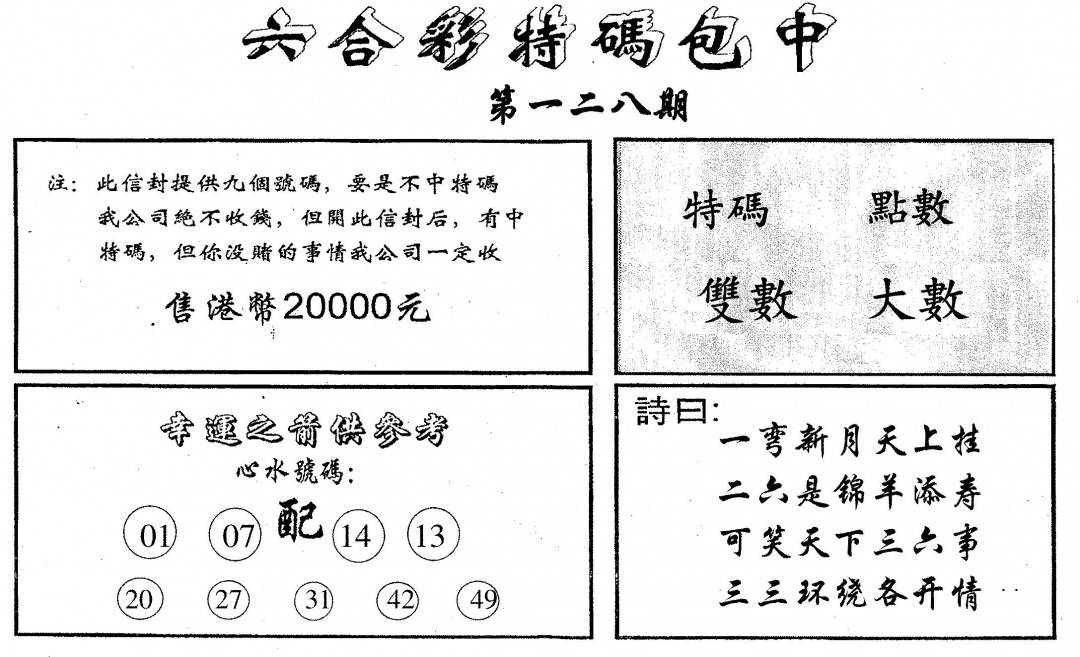 六合彩特碼包中
第一二八期
注：此信封提供九個號碼，要是不中特碼
我公司絕不收錢，但開此信封后，有中
特碼，但你没賭的事情我公司一定收
售港幣20000元
特碼 點數
雙數 大數
幸運之箭供參考
心水號碼：
配
01 07 14 13
20 27 31 42 49
詩曰：
一弯新月天上挂
二六是锦羊添寿
可笑天下三六事
三三环绕各开情